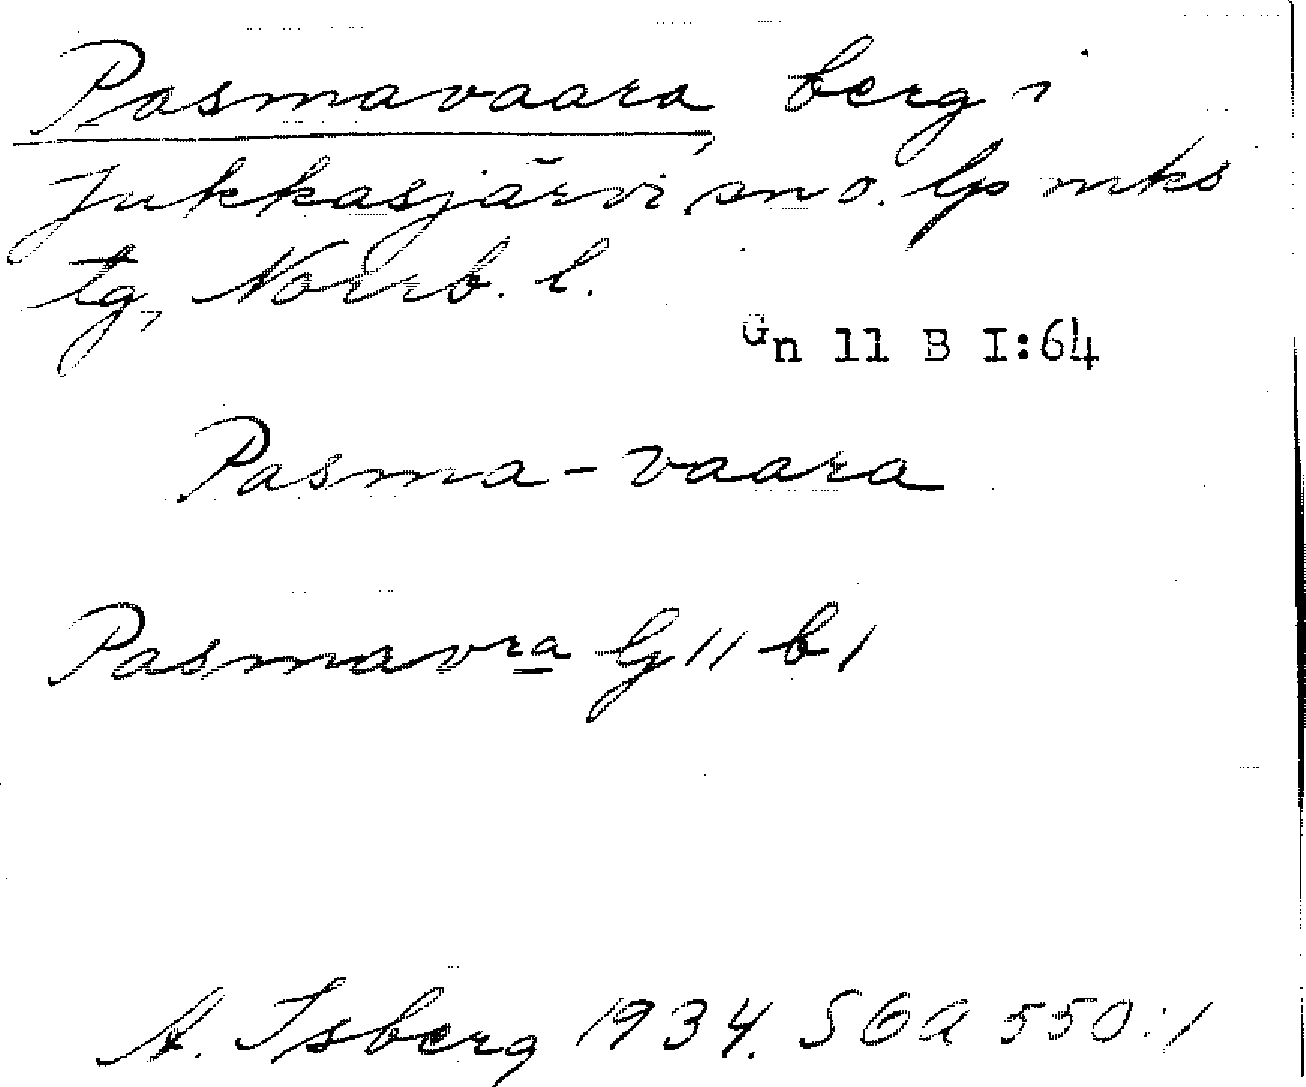 Pasmavaara, berg i
Jukkasjärvi sn o. lp mks
tg, Norrb. l.
Gn 11 B I:64
Pasma-vaara
Pasmavra G 11 b 1
A. Isberg 1934. SOA 550:1